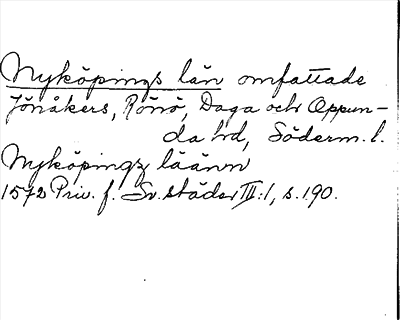 Nyköpings län omfattade
Jönåkers, Rönö, Daga och Oppun-
da hd, Söderm. l.
Nyköpingz läänn
1572 Priv. f. Sv. städer III:1, s. 190.